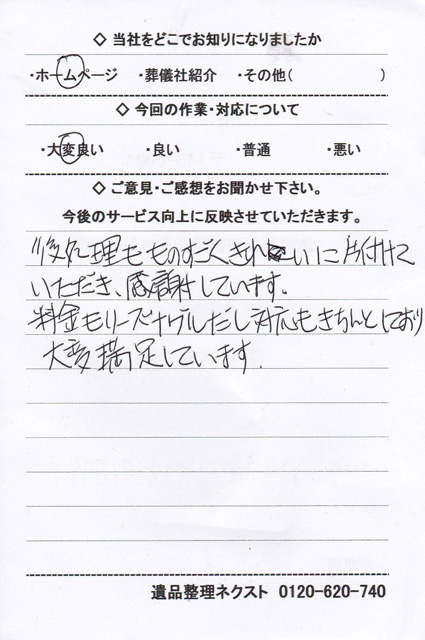 ◇ 当社をどこでお知りになりましたか
・ホームページ ・葬儀社紹介 ・その他( )
◇ 今回の作業・対応について
・大変良い ・良い ・普通 ・悪い
◇ ご意見・ご感想をお聞かせ下さい。
今後のサービス向上に反映させていただきます。
後処理もものすごくきれいに片付けて
いただき、感謝しています。
料金もリーズナブルだし対応もきちんとしており
大変満足しています。
遺品整理ネクスト 0120-620-740